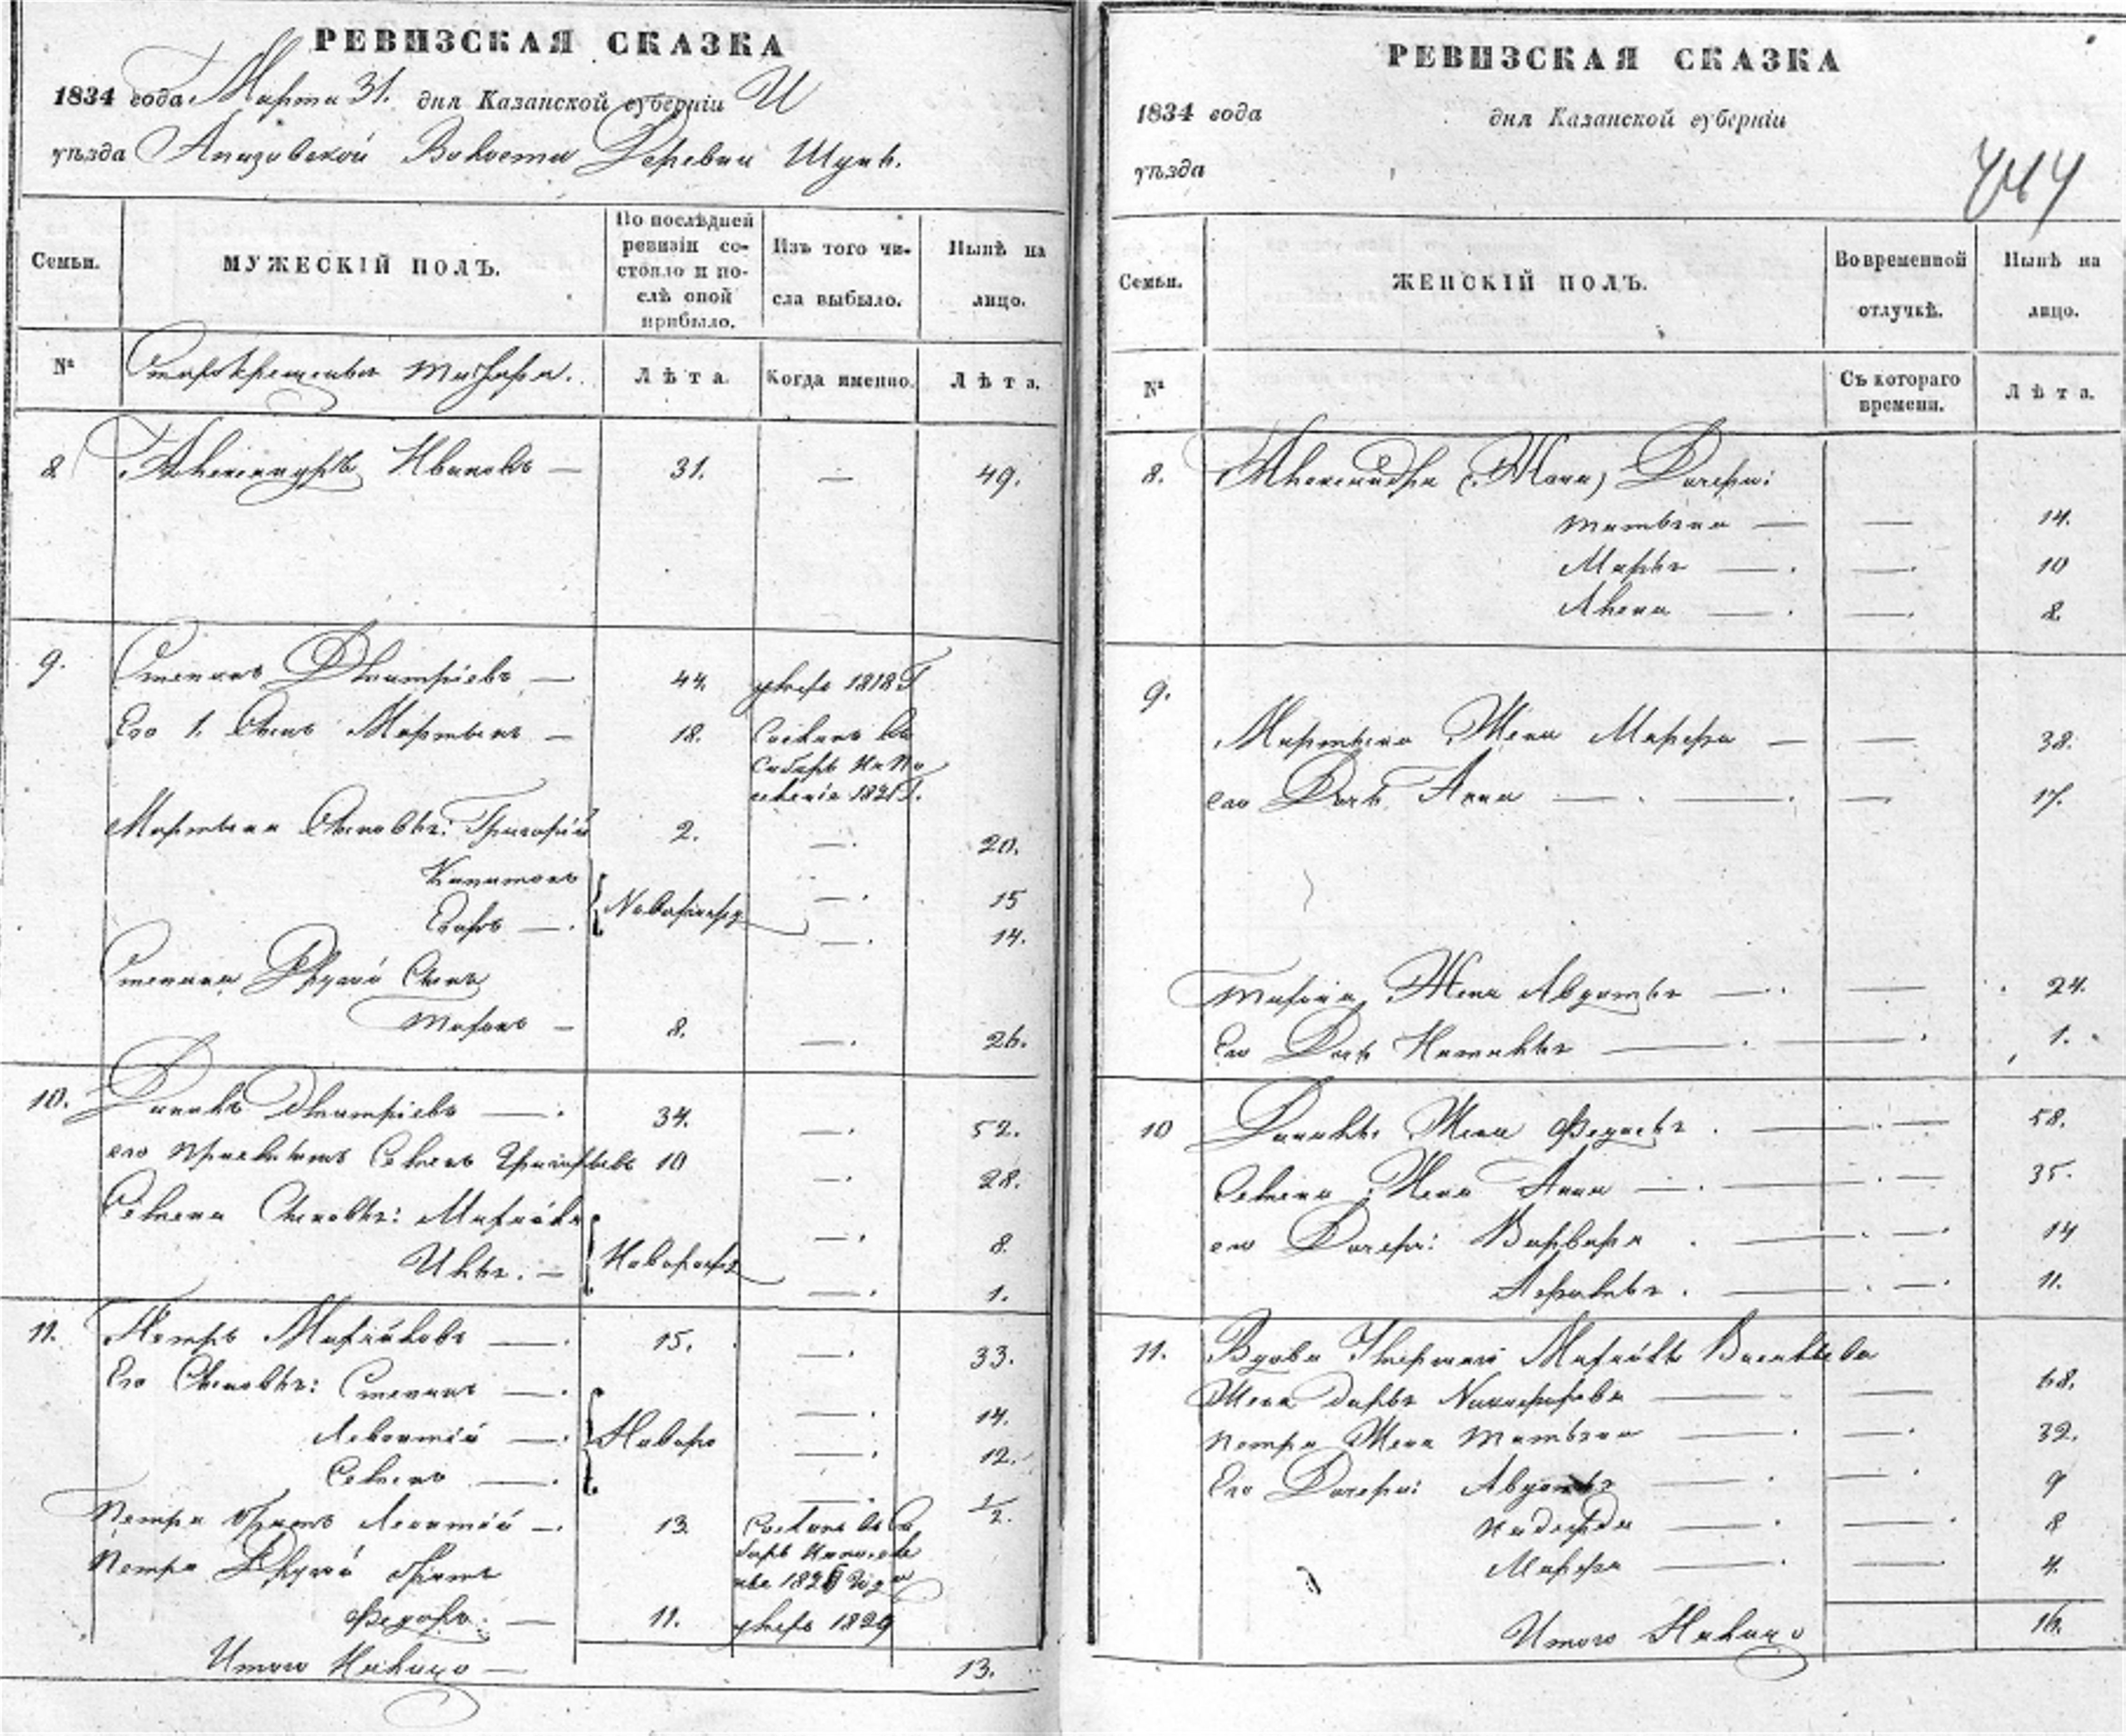 РЕВИЗСКАЯ СКАЗКА
1834 года Марта 31. дня Казанской губерніи
уѣзда Апазовской Волости Деревни Шунь.
Семьи.
МУЖЕСКІЙ ПОЛЪ.
По послѣдней ревизіи состояло и послѣ оной прибыло.
Изъ того числа выбыло.
Нынѣ на лицо.
№
Старокрещены татара.
Лѣта.
Когда именно.
Лѣта.
8. Александръ Ивановъ — 31. — 49.
9. Степанъ Дмитріевъ — 44. умеръ 1818 Г
Его 1. Сынъ Мартынъ — 18. Сосланъ въ
Сибирь на по
селеніе 1821 Г.
Мартына Сыновья: Григорій 2. — 20.
Капитонъ — 15
Новорожд
Егоръ — 14.
Степана Другой Сынъ
Тифонъ — 8. — 26.
10. Данилъ Дмитріевъ — 34. — 52.
его Семенъ Григорьевъ 10 — 28.
Семена Сыновья: Михайла — 8.
Новорожд
Илья. — 1.
11. Петръ Михайловъ — 15. — 33.
Его Сыновья: Степанъ — 14.
Леонтій — Новоро — 12.
Семенъ — 1/2.
Петра братъ Леонтій — 13. Сосланъ въ Си
бирь на поселе
ніе Года
Петра Другой братъ
Федоръ. — 11. умеръ 1829
Итого Налицо — 13.
РЕВИЗСКАЯ СКАЗКА
1834 года дня Казанской губерніи
уѣзда
Семьи.
ЖЕНСКІЙ ПОЛЪ.
Во временной отлучкѣ.
Нынѣ на лицо.
№
Съ котораго времени.
Лѣта.
8. Александра Дочери:
Татьяна — — 14.
Марья — — 10
Алена — — 8.
9.
Мартына Жена Марфа — — 38.
его Дочь Анна — — 17.
Жена Авдотья — — 24.
Его Дочь Наталья — 1.
10 Данилы Жена Федосья — — 58.
Семена Жена Анна — — 35.
его Дочери: Варвара — — 14
— — 11.
11. Вдова Умершаго Михайлы Васильева
Жена Дарья Никифорова — — 68.
Петра Жена Татьяна — — 32.
Его Дочери: Авдотья — — 9
Надежда — — 8
Марфа — — 4.
Итого Налицо 16.